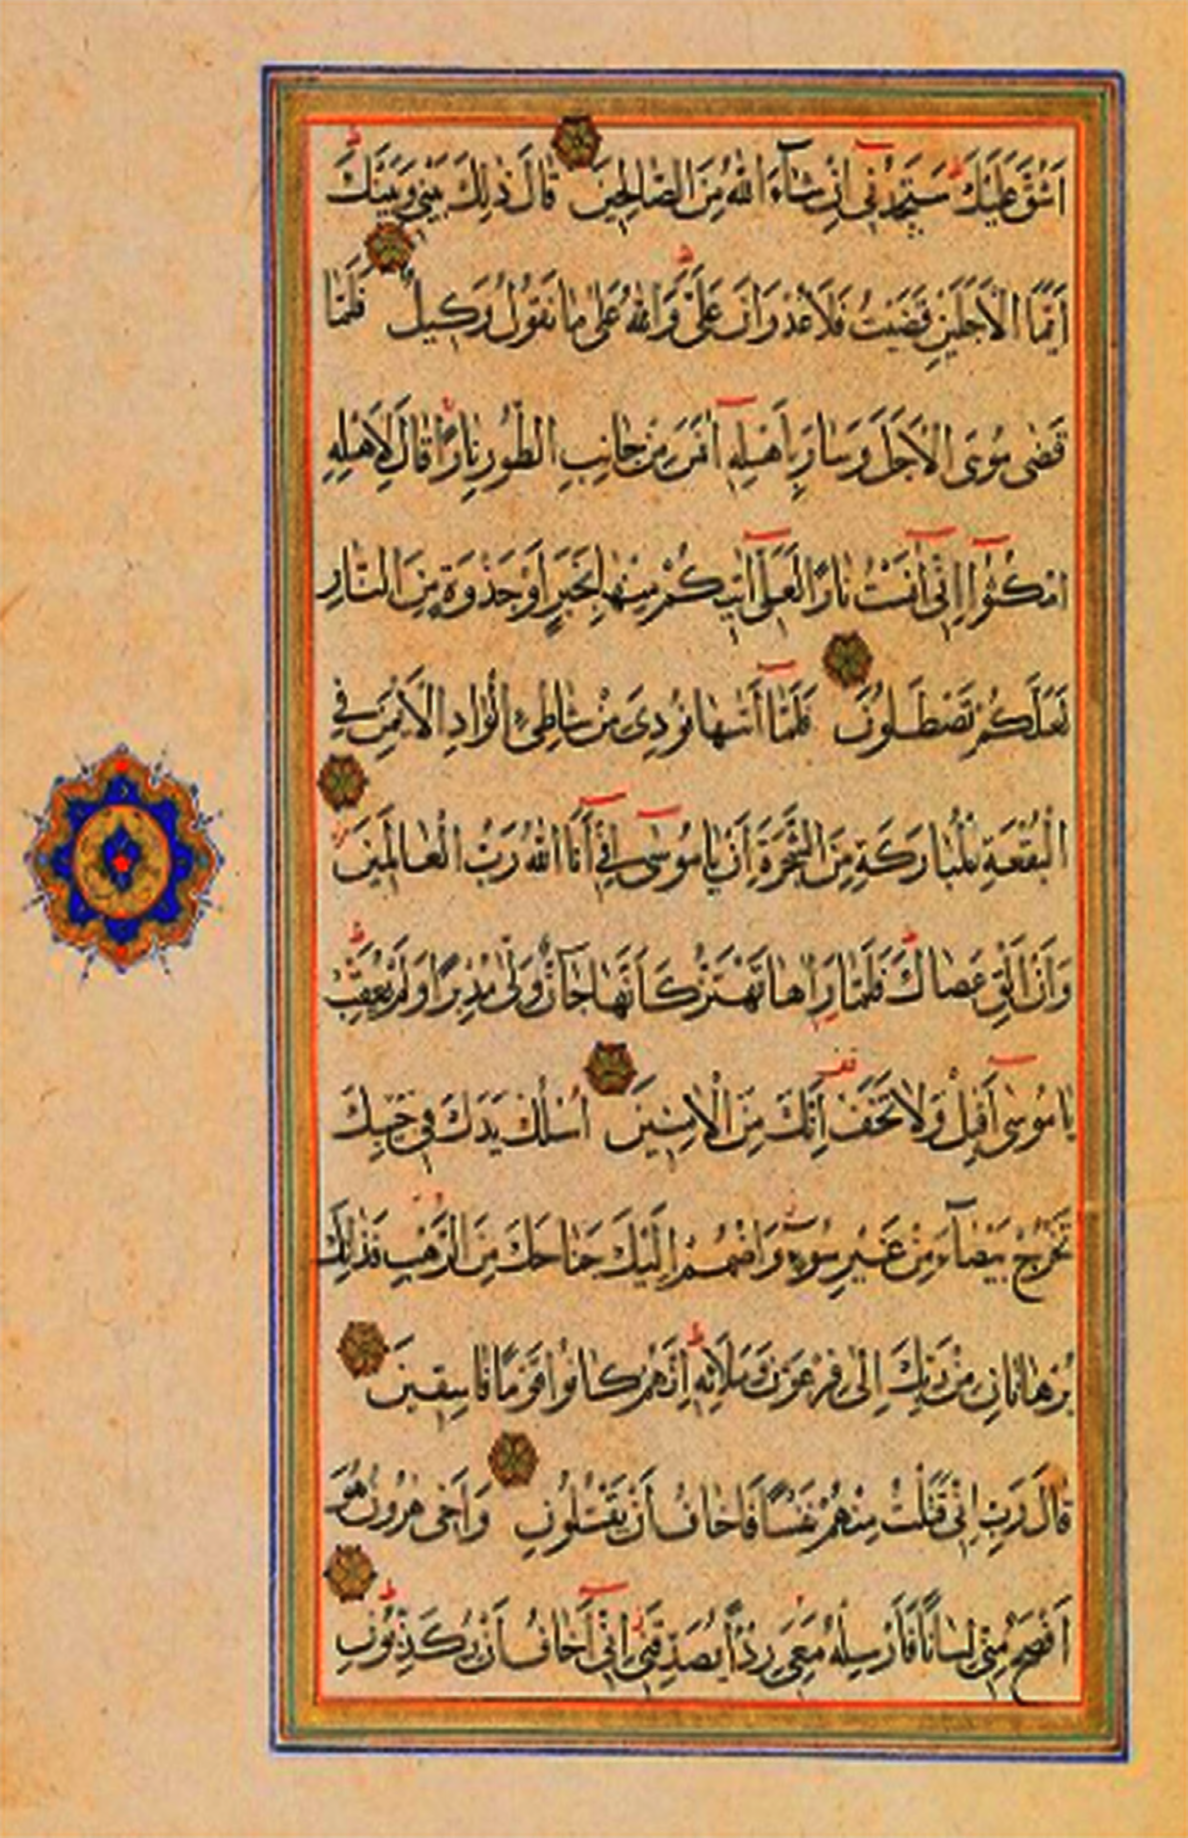 اَشُقَّ عَلَيْكَ سَتَجِدُنٖٓي اِنْ شَآءَ اللّٰهُ مِنَ الصَّالِحٖينَ قَالَ ذٰلِكَ بَيْنٖي وَبَيْنَكَ
اَيَّمَا الْاَجَلَيْنِ قَضَيْتُ فَلَا عُدْوَانَ عَلَيَّ وَاللّٰهُ عَلٰى مَا نَقُولُ وَكٖيلٌ فَلَمَّا
قَضٰى مُوسَى الْاَجَلَ وَسَارَ بِاَهْلِهٖٓ اٰنَسَ مِنْ جَانِبِ الطُّورِ نَارًا قَالَ لِاَهْلِهِ
امْكُثُٓوا اِنّٖٓي اٰنَسْتُ نَارًا لَعَلّٖٓي اٰتٖيكُمْ مِنْهَا بِخَبَرٍ اَوْ جَذْوَةٍ مِنَ النَّارِ
لَعَلَّكُمْ تَصْطَلُونَ فَلَمَّٓا اَتٰيهَا نُودِيَ مِنْ شَاطِئِ الْوَادِ الْاَيْمَنِ فِي
الْبُقْعَةِ الْمُبَارَكَةِ مِنَ الشَّجَرَةِ اَنْ يَا مُوسٰٓى اِنّٖٓي اَنَا اللّٰهُ رَبُّ الْعَالَمٖينَ
وَاَنْ اَلْقِ عَصَاكَ فَلَمَّا رَاٰهَا تَهْتَزُّ كَاَنَّهَا جَآنٌّ وَلّٰى مُدْبِرًا وَلَمْ يُعَقِّبْ
يَا مُوسٰٓى اَقْبِلْ وَلَا تَخَفْ اِنَّكَ مِنَ الْاٰمِنٖينَ اُسْلُكْ يَدَكَ فٖي جَيْبِكَ
تَخْرُجْ بَيْضَآءَ مِنْ غَيْرِ سُوٓءٍ وَاضْمُمْ اِلَيْكَ جَنَاحَكَ مِنَ الرَّهْبِ فَذَانِكَ
بُرْهَانَانِ مِنْ رَبِّكَ اِلٰى فِرْعَوْنَ وَمَلَائِهٖ اِنَّهُمْ كَانُوا قَوْمًا فَاسِقٖينَ
قَالَ رَبِّ اِنّٖي قَتَلْتُ مِنْهُمْ نَفْسًا فَاَخَافُ اَنْ يَقْتُلُونِ وَاَخٖي هٰرُونُ هُوَ
اَفْصَحُ مِنّٖي لِسَانًا فَاَرْسِلْهُ مَعِيَ رِدْءًا يُصَدِّقُنٖٓي اِنّٖٓي اَخَافُ اَنْ يُكَذِّبُونِ